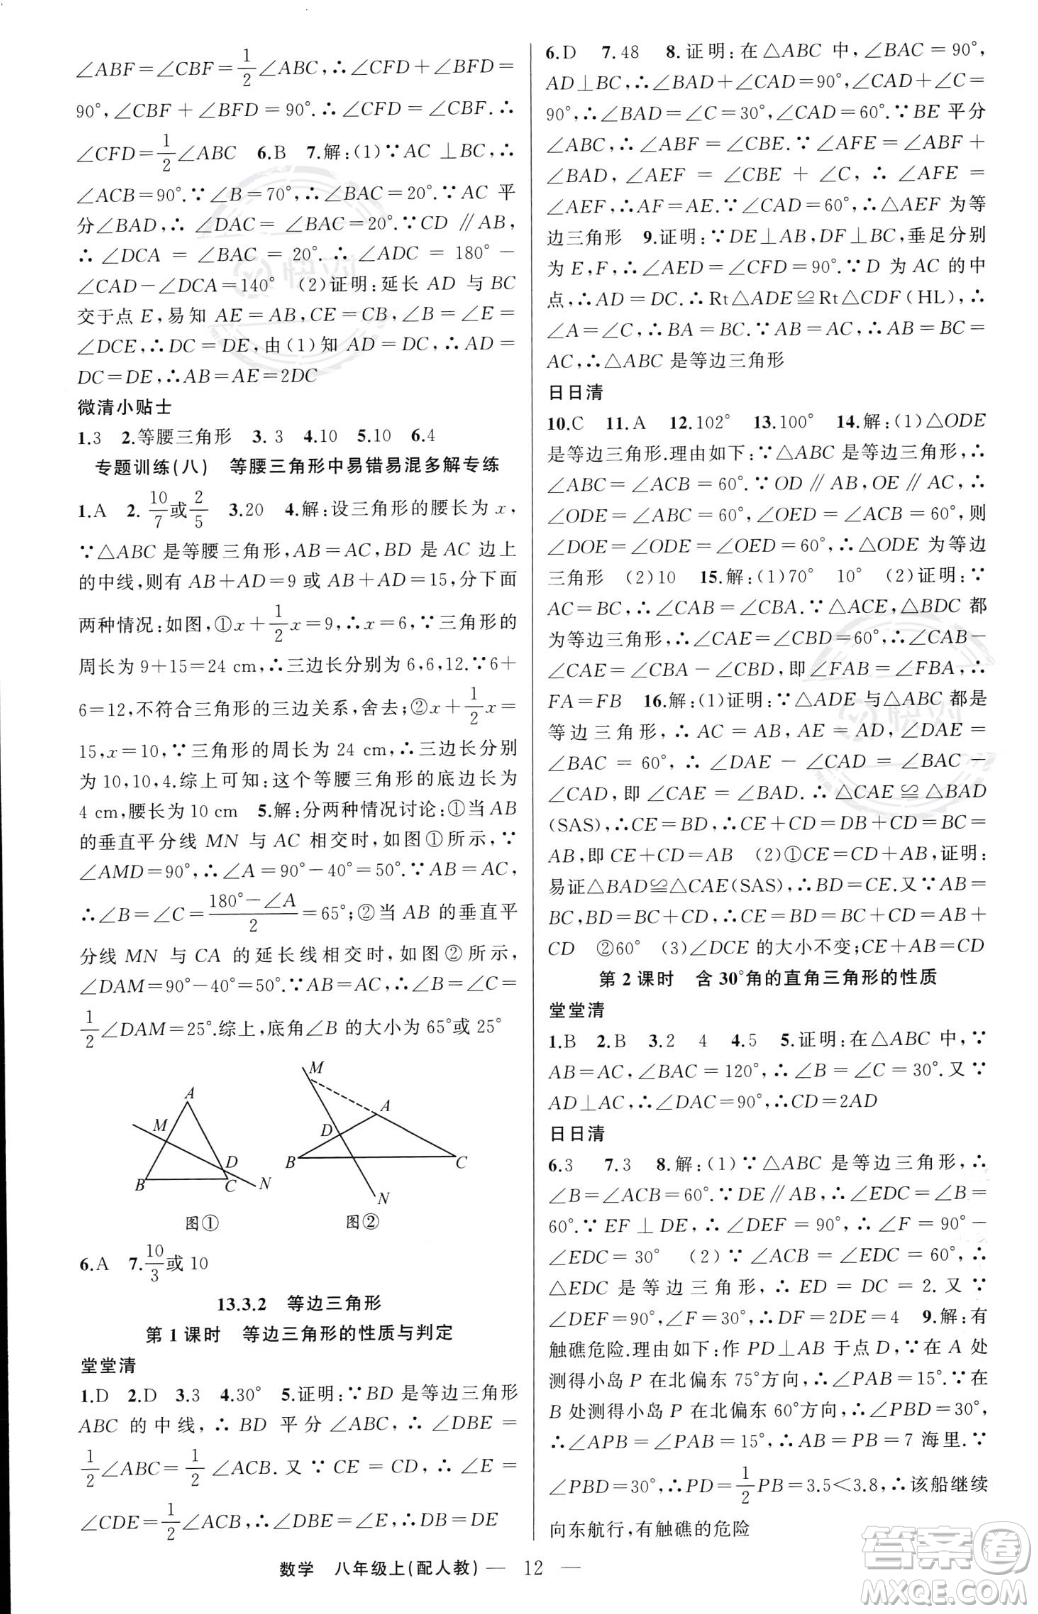 ∠ABF=∠CBF=1/2∠ABC,∴∠CFD+∠BFD=
90°,∠CBF+∠BFD=90°.∴∠CFD=∠CBF.∴
∠CFD=1/2∠ABC 6.B 7.解:(1)∵AC⊥BC,∴
∠ACB=90°.∵∠B=70°,∴∠BAC=20°.∵AC 平
分∠BAD,∴∠DAC=∠BAC=20°.∵CD∥AB,
∴∠DCA=∠BAC=20°.∴∠ADC=180°-
∠CAD-∠DCA=140° (2)证明:延长 AD 与 BC
交于点 E,易知 AE=AB,CE=CB,∠B=∠E=
∠DCE,∴DC=DE,由(1)知 AD=DC,∴AD=
DC=DE,∴AB=AE=2DC
微清小贴士
1.3 2.等腰三角形 3.3 4.10 5.10 6.4
专题训练(八) 等腰三角形中易错易混多解专练
1.A 2.10/7或2/5 3.20 4.解:设三角形的腰长为 x,
∵△ABC 是等腰三角形,AB=AC,BD 是 AC 边上
的中线,则有 AB+AD=9 或 AB+AD=15,分下面
两种情况:如图,①x+1/2x=9,∴x=6,∵三角形的
周长为 9+15=24 cm,∴三边长分别为 6,6,12.∵6+
6=12,不符合三角形的三边关系,舍去;②x+1/2x=
15,x=10,∵三角形的周长为 24 cm,∴三边长分别
为 10,10,4.综上可知:这个等腰三角形的底边长为
4 cm,腰长为 10 cm 5.解:分两种情况讨论:①当 AB
的垂直平分线 MN 与 AC 相交时,如图①所示,∵
∠AMD=90°,∴∠A=90°-40°=50°,∵AB=AC,
∴∠B=∠C=(180°-∠A)/2=65°;②当 AB 的垂直平
分线 MN 与 CA 的延长线相交时,如图②所示,
∠DAM=90°-40°=50°.∵AB=AC,∴∠B=∠C=
1/2∠DAM=25°.综上,底角∠B 的大小为 65°或 25°
A
M
D
B
C
N
图①
M
A
D
B
C
N
图②
6.A 7.10/3或 10
13.3.2 等边三角形
第 1 课时 等边三角形的性质与判定
堂堂清
1.D 2.D 3.3 4.30° 5.证明:∵BD 是等边三角形
ABC 的中线,∴BD 平分∠ABC,∴∠DBE=
1/2∠ABC=1/2∠ACB.又∵CE=CD,∴∠E=
∠CDE=1/2∠ACB.∴∠DBE=∠E,∴DB=DE
6.D 7.48 8.证明:在△ABC 中,∠BAC=90°,
AD⊥BC,∴∠BAD+∠CAD=90°,∠CAD+∠C=
90°.∴∠BAD=∠C=30°,∠CAD=60°.∵BE 平分
∠ABC,∴∠ABE=∠CBE.∵∠AFE=∠ABF+
∠BAD,∠AEF=∠CBE+∠C,∴∠AFE=
∠AEF,∴AF=AE.∵∠CAD=60°,∴△AEF 为等
边三角形 9.证明:∵DE⊥AB,DF⊥BC,垂足分别
为 E,F,∴∠AED=∠CFD=90°.∵D 为 AC 的中
点,∴AD=DC.∴Rt△ADE≌Rt△CDF(HL),∴
∠A=∠C,∴BA=BC.∵AB=AC,∴AB=BC=
AC,∴△ABC 是等边三角形
日日清
10.C 11.A 12.102° 13.100° 14.解:(1)△ODE
是等边三角形.理由如下:∵△ABC 是等边三角形,
∴∠ABC=∠ACB=60°.∵OD∥AB,OE∥AC,∴
∠ODE=∠ABC=60°,∠OED=∠ACB=60°,则
∠DOE=∠ODE=∠OED=60°,∴△ODE 为等边
三角形 (2)10 15.解:(1)70° 10° (2)证明:∵
AC=BC,∴∠CAB=∠CBA.∵△ACE,△BDC 都
为等边三角形,∴∠CAE=∠CBD=60°,∴
∠CAB-∠CAE=∠CBA-∠CBD,即∠FAB=∠FBA,∴
FA=FB 16.解:(1)证明:∵△ADE 与△ABC 都是
等边三角形,∴AC=AB,AE=AD,∠DAE=
∠BAC=60°,∴∠CAE=∠BAD,∴△CAE≌△BAD
(SAS),∴CE=BD,∴CE+CD=DB+CD=CB=
AB,即 CE+CD=AB (2)①CE=CD+AB,证明:
易证△BAD≌△CAE(SAS),∴CE=BD.又∵AB=
BC,BD=BC+CD,即 BD=AB+CD,∴CE=AB+
CD ②60° (3)∠DCE 的大小不变;CE+AB=CD
第 2 课时 含 30°角的直角三角形的性质
堂堂清
1.B 2.B 3.2 4 4.5 5.证明:在△ABC 中,∵
AB=AC,∠BAC=120°,∴∠B=∠C=30°.又∵
AD⊥AC,∴∠DAC=90°,∴CD=2AD
日日清
6.3 7.3 8.解:(1)∵△ABC 是等边三角形,∴
∠B=∠ACB=60°.∵DE∥AB,∴∠EDC=∠B=
60°.∵EF⊥DE,∴∠DEF=90°,∴∠F=90°-
∠EDC=30° (2)∵∠ACB=∠EDC=60°,∴
△EDC 是等边三角形,∴ED=DC=2.又∵
∠DEF=90°,∠F=30°,∴DF=2DE=4 9.解:有
触礁危险.理由如下:作 PD⊥AB 于点 D,∵在 A 处
测得小岛 P 在北偏东 75°方向,∴∠PAB=15°.∵在
B 处测得小岛 P 在北偏东 60°方向,∴∠PBD=30°,
∴∠APB=∠PAB=15°,∴AB=PB=7 海里.∵
∠PBD=30°,∴PD=1/2PB=3.5<3.8,∴该船继续
向东航行,有触礁的危险
数学 八年级上(配人教) — 12 —
答案圈
MXQE.COM